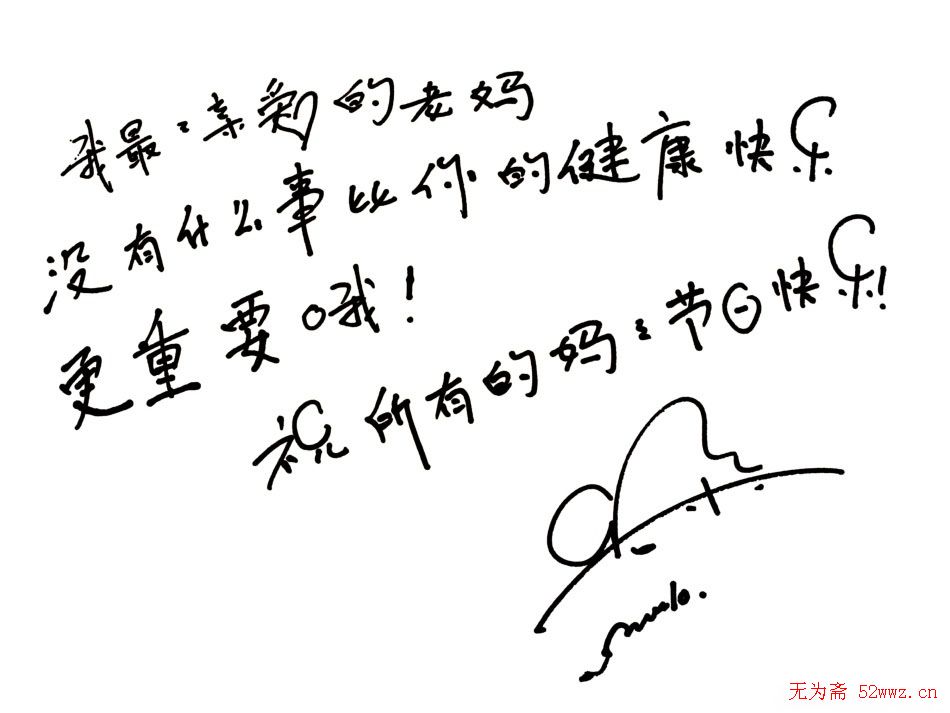 我最:亲爱的老妈
没有什么事比你的健康快乐
更重要哦!
祝所有的妈:节日快乐!
无为斋 52wwz.cn